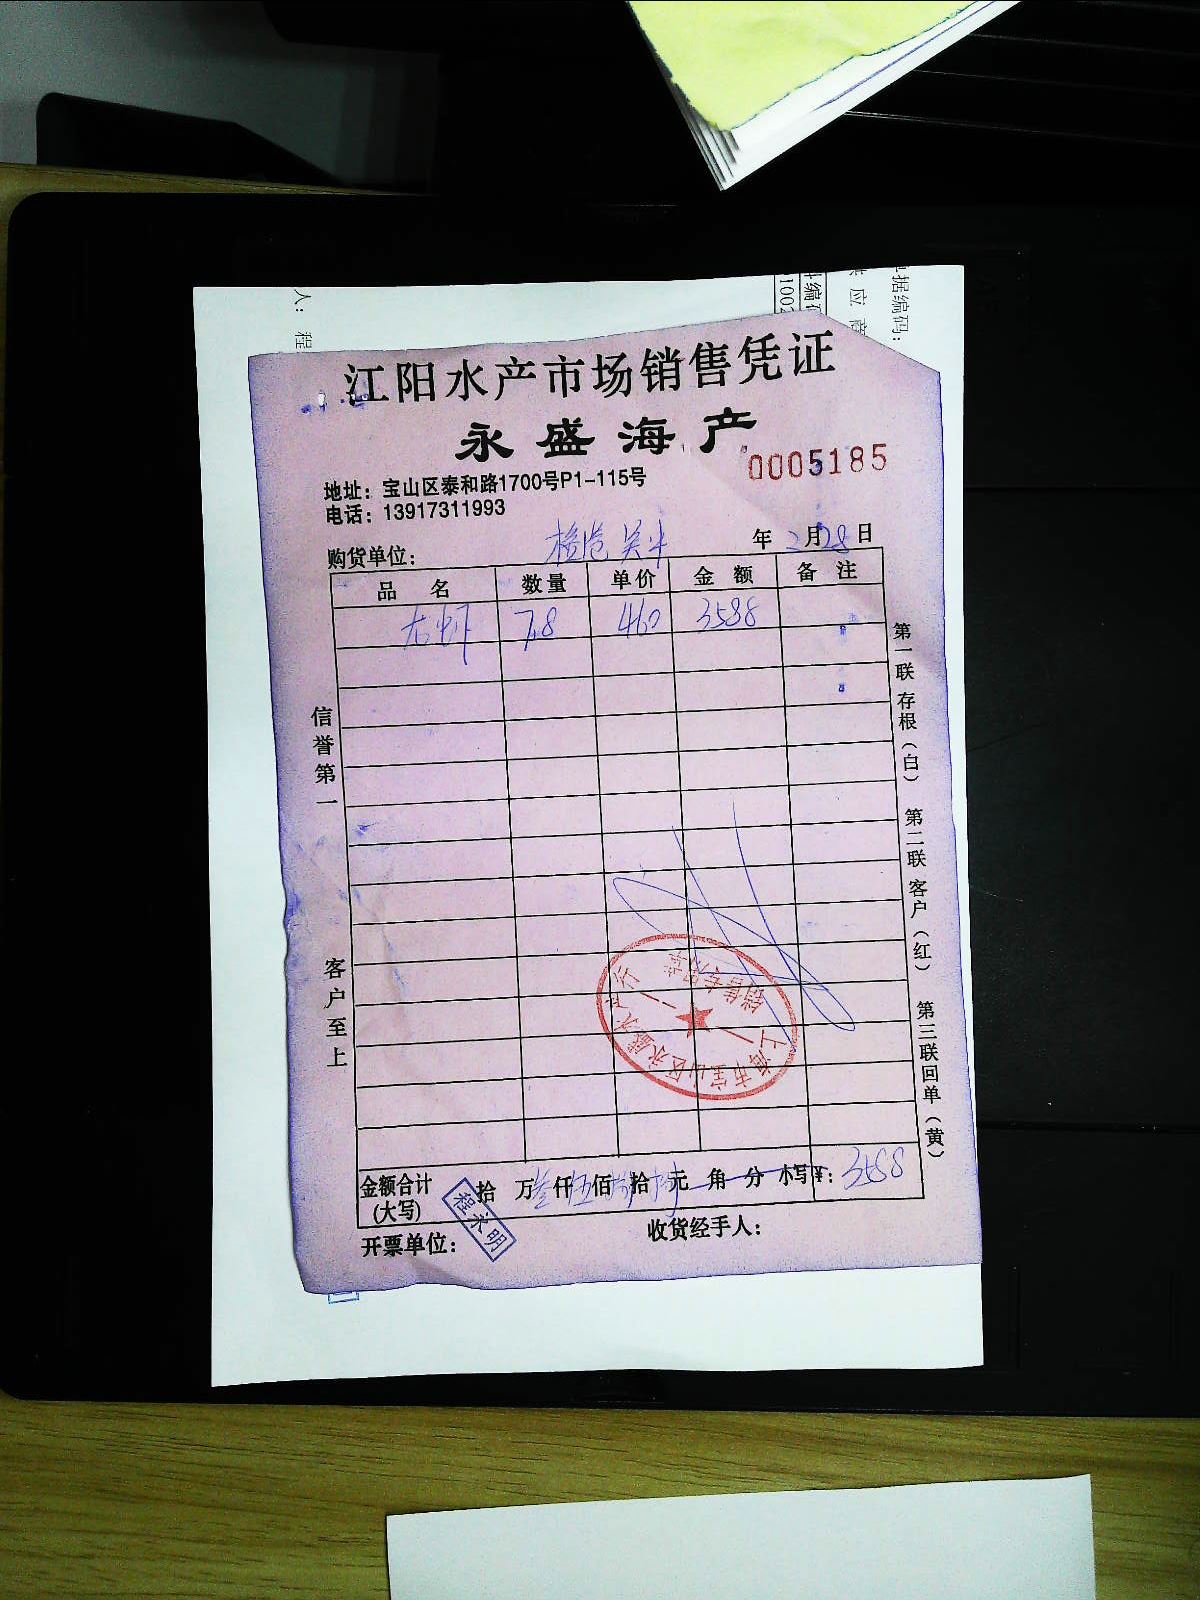 单据编码:
供应商
料编码
1002
人: 程
江阳水产市场销售凭证
永盛海产
0005185
地址: 宝山区泰和路1700号P1-115号
电话: 13917311993
购货单位: 年 2月28日
品名 数量 单价 金额 备注
7.8 460 3588
信誉第一
客户至上
第一联 存根(白)
第二联 客户(红)
第三联回单(黄)
上海市宝山区永盛水产行
销售专用章
金额合计(大写) 拾 万叁仟伍佰捌拾捌元 角 分 小写¥: 3588
程永明
开票单位: 收货经手人: